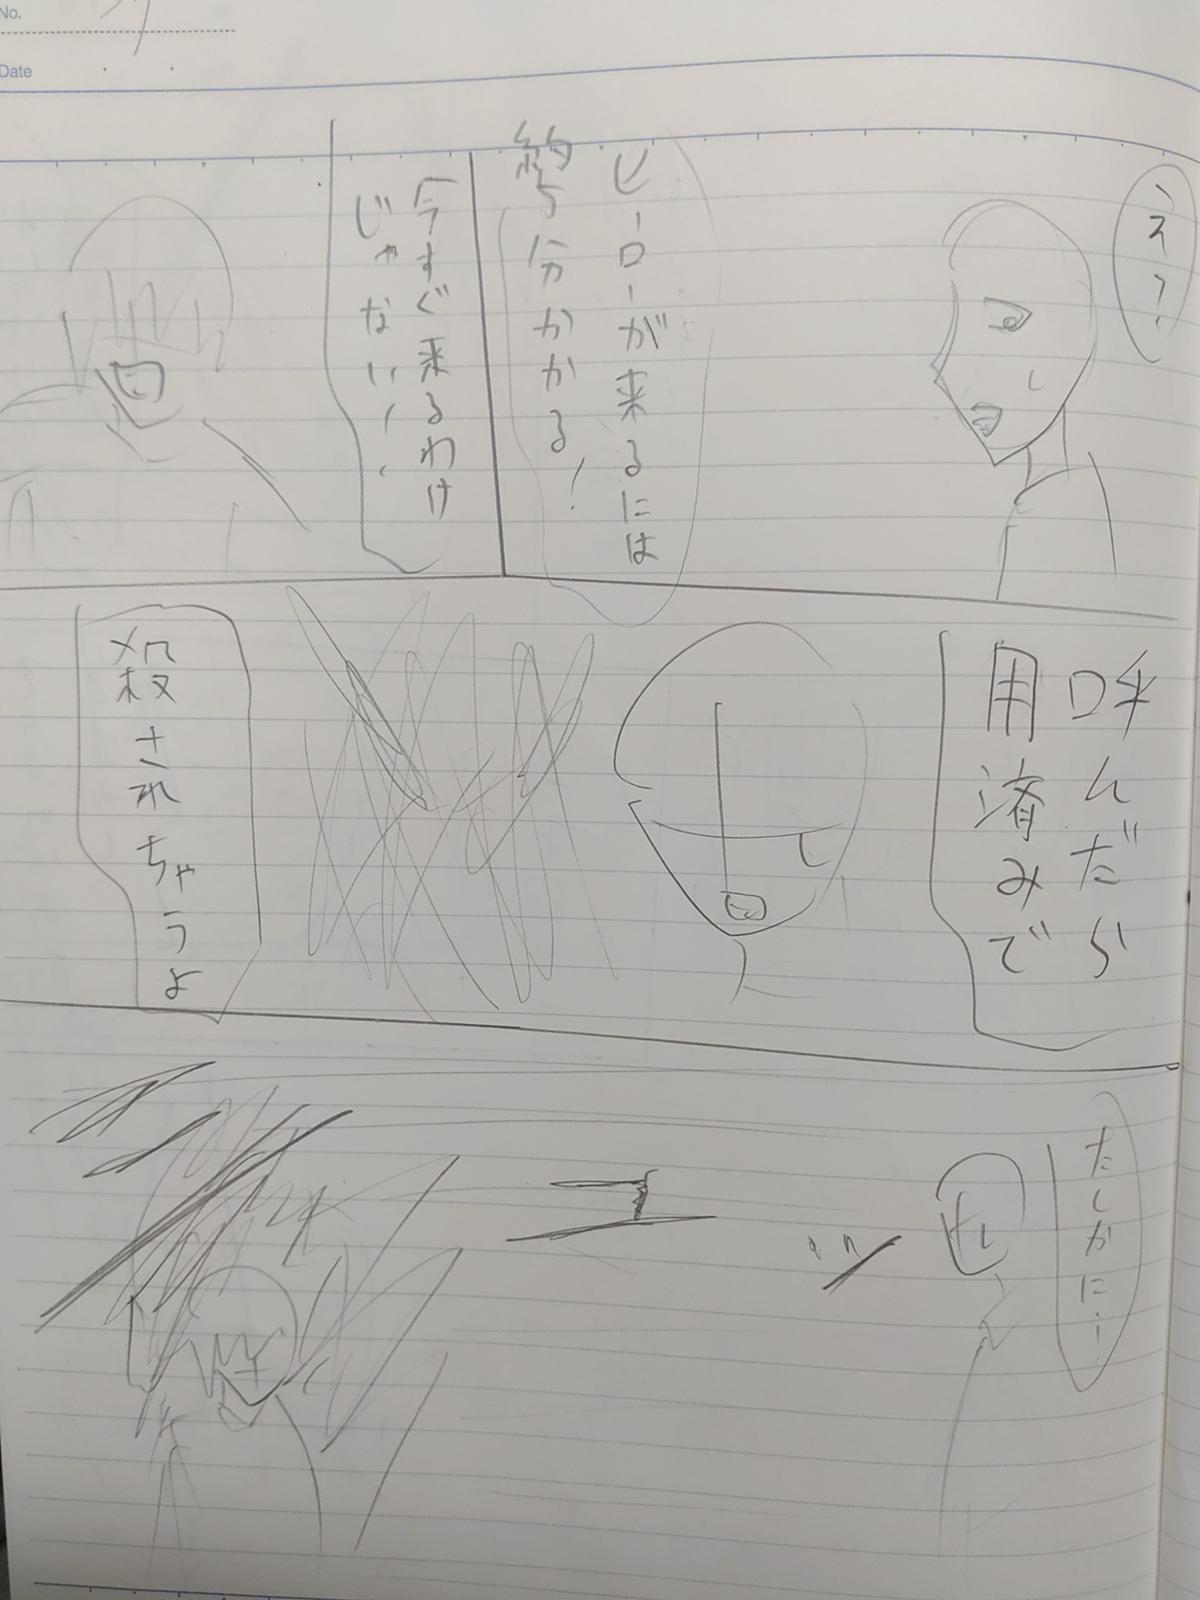 No.
Date
えっ!
ヒーローが来るには
約5分かかる!
今すぐ来るわけ
じゃない!
呼んだら
用済みで
殺されちゃうよ
たしかに…